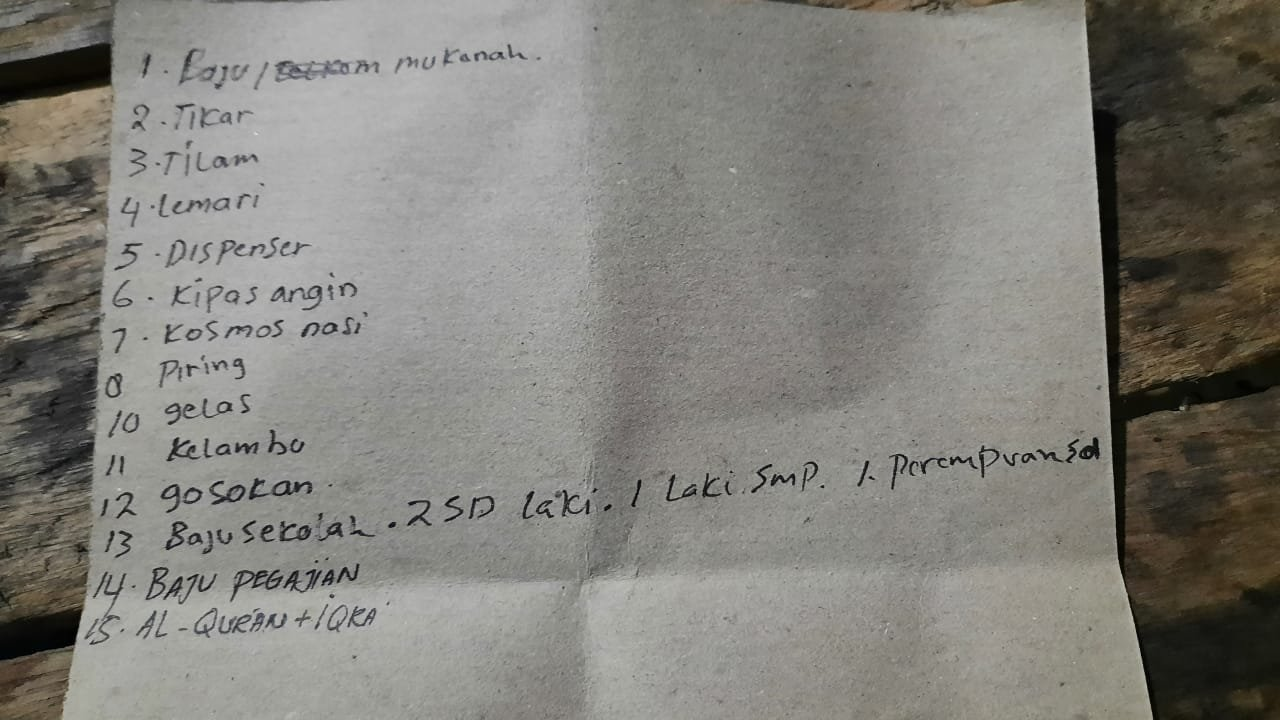 1. Baju / mukanah.
2. Tikar
3. Tilam
4. lemari
5. Dispenser
6. Kipas angin
7. Kosmos nasi
8 Piring
10 gelas
11 Kelambu
12 gosokan.
13 Baju sekolah. 2 SD laki. 1 Laki SMP. 1. Perempuan Sd
14. BAJU PEGAJIAN
15. AL-QUR'AN + IQRA'